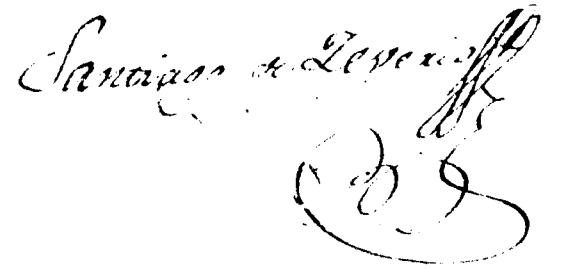 Santiago de Zeverio